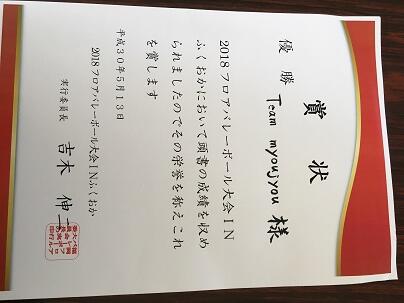 賞状
優勝
Team myoujyou 様
2018フロアバレーボール大会IN
ふくおかにおいて頭書の成績を収め
られましたのでその栄誉を称えこれ
を賞します
平成30年5月13日
2018フロアバレーボール大会INふくおか
実行委員長 吉木 伸